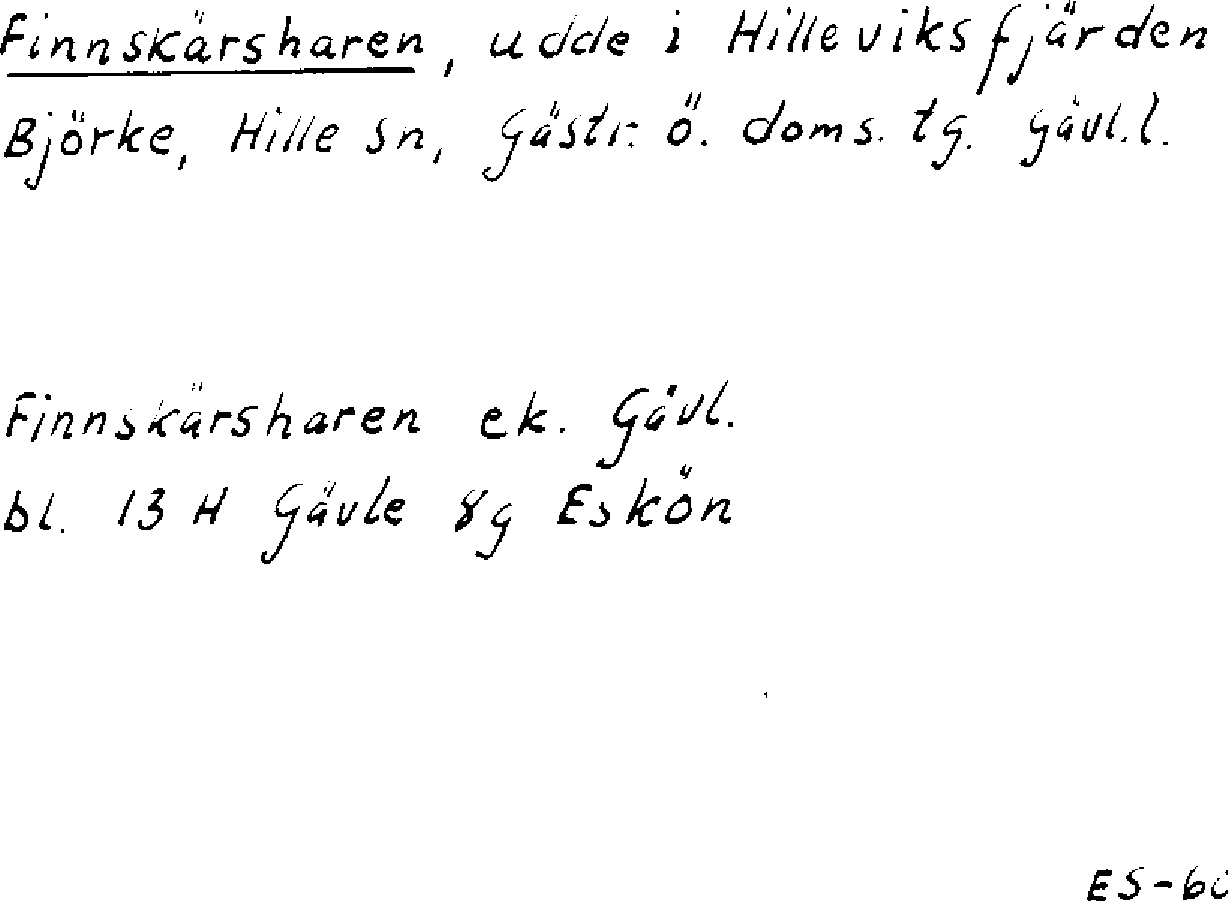 Finnskärsharen, udde i Hilleviksfjärden
Björke, Hille sn, Gästr. ö. doms. tg. Gävl.l.
Finnskärsharen ek. Gävl.
bl. 13 H Gävle 8g Eskön